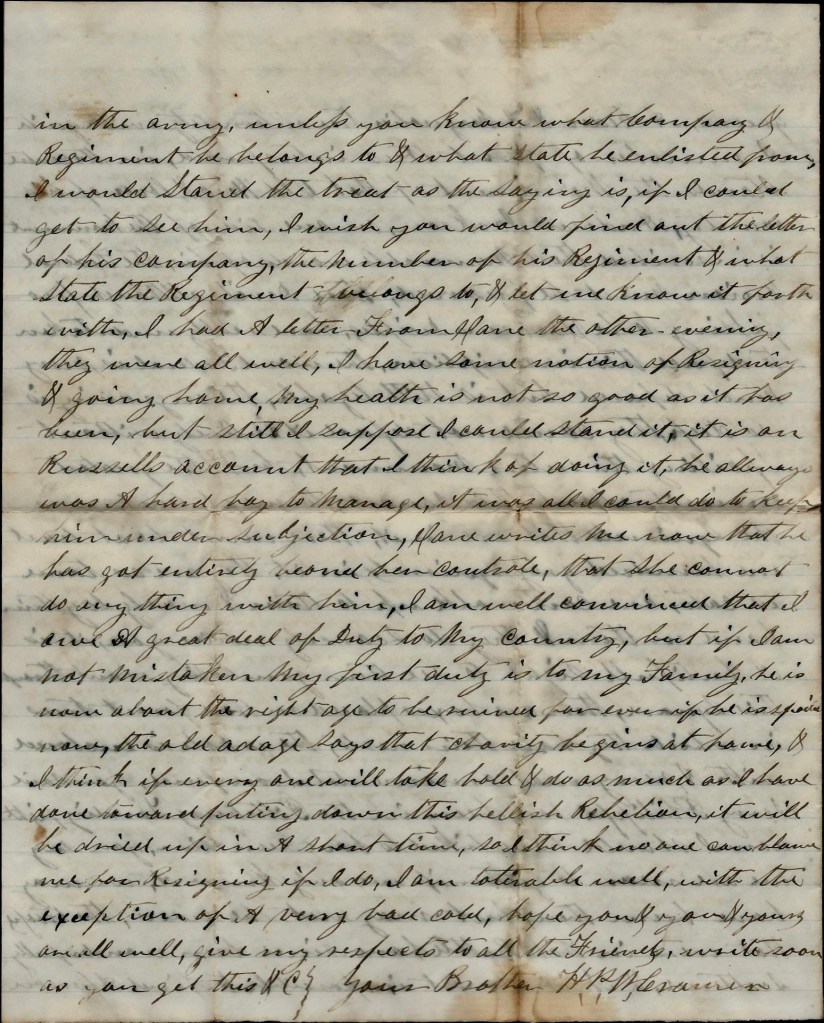 in the army, unless you know what Company &
Regiment he belongs to & what state he enlisted from,
I would Stand the treat as the saying is, if I could
get to see him, I wish you would find out the letter
of his company, the number of his Regiment & what
State the Regiment belongs to, & let me know it forth
with, I had A letter From Jane the other evening,
they were all well, I have some notion of Resigning
& going home, My health is not so good as it has
been, but still I suppose I could stand it, it is on
Russells account that I think of doing it, he allways
was A hard boy to Manage, it was all I could do to keep
him under subjection, Jane writes me now that he
has got entirely beond her controle, that she cannot
do anything with him, I am well convinced that I
owe A great deal of Duty to My country, but if I am
not mistaken My first duty is to my Family, he is
now about the right age to be ruined for ever if he is spoiled
now, the old adage says that charity begins at home, &
I think if every one will take hold & do as much as I have
done toward puting down this hellish Rebelion, it will
be dried up in A short time, so I think no one can blame
me for Resigning if I do, I am tolirable well, with the
exception of A verry bad cold, hope you & you & yours
are all well, give my respects to all the Friends, write soon
as you get this & C} Your Brother H. P. W. Cramer